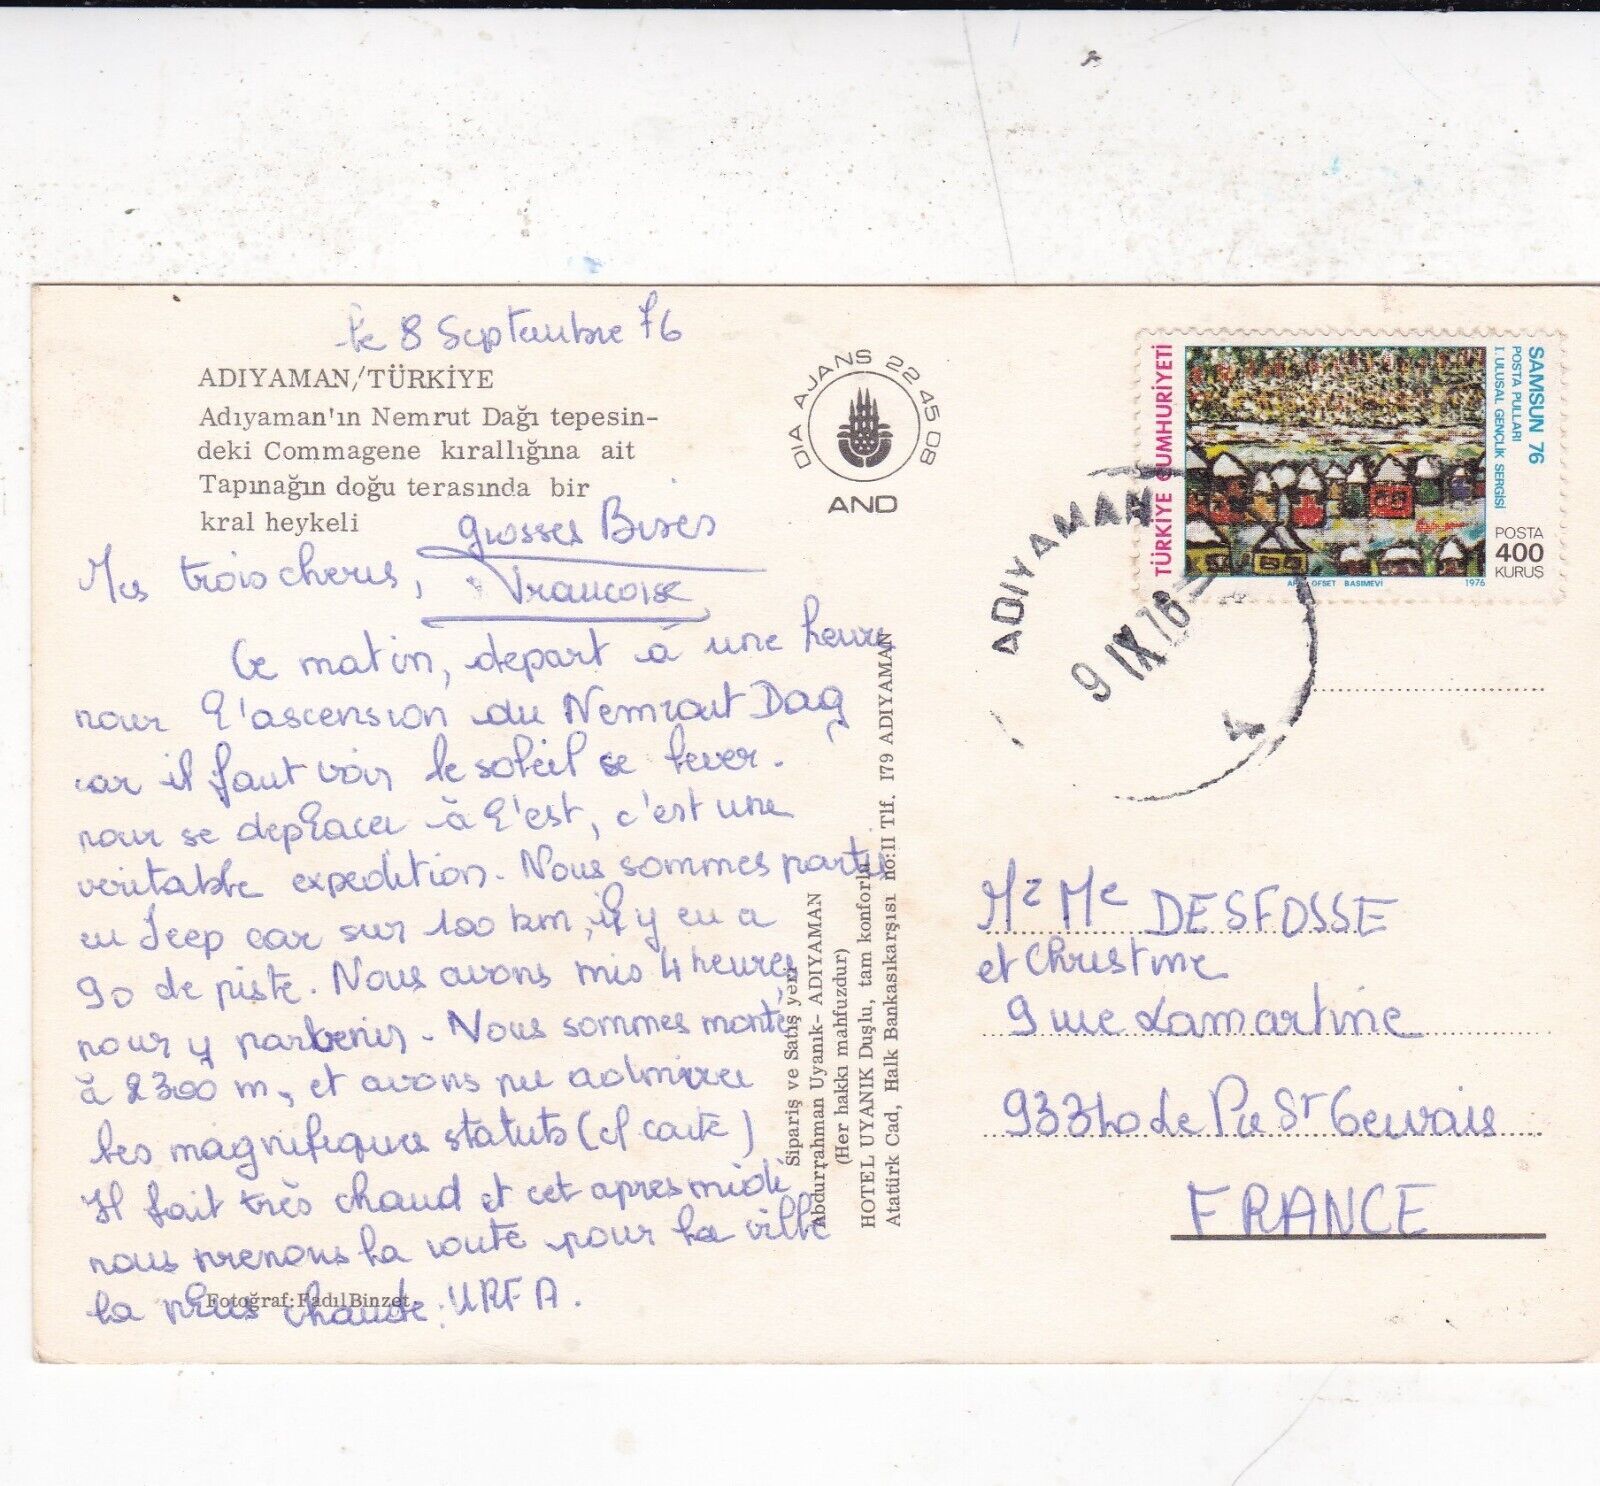 le 8 Septembre 76
ADIYAMAN/TÜRKİYE
Adıyaman'ın Nemrut Dağı tepesin-
deki Commagene kırallığına ait
Tapınağın doğu terasında bir
kral heykeli
grosses Bises
Francoise
Mes trois cheris,
Ce matin, depart à une heure
pour l'ascension du Nemrout Dag
car il faut voir le soleil se lever.
pour se deplacer à l'est, c'est une
veritable expedition. Nous sommes partis
en Jeep car sur 100 km, il y en a
90 de piste. Nous avons mis 4 heures
pour y parvenir. Nous sommes monté
à 2300 m, et avons pu admirer
les magnifiques statuts (cf carte)
Il fait très chaud et cet apres midi
nous prenons la route pour la ville
la plus chaude: URFA.
Fotoğraf: Fadıl Binzet
DIA AJANS 22 45 08
AND
Sipariş ve Satış yeri
Abdurrahman Uyanık - ADIYAMAN
(Her hakkı mahfuzdur)
HOTEL UYANIK Duşlu, tam konforlu
Atatürk Cad, Halk Bankasıkarşısı no:II Tlf. I79 ADIYAMAN
TÜRKİYE CUMHURİYETİ
SAMSUN 76
POSTA PULLARI
I. ULUSAL GENÇLİK SERGİSİ
POSTA
400
KURUŞ
OFSET BASIMEVİ 1976
ADIYAMAN
9 IX 76
4
Mr Me DESFOSSE
et Christine
9 rue Lamartine
93340 de Pré St Gervais
FRANCE